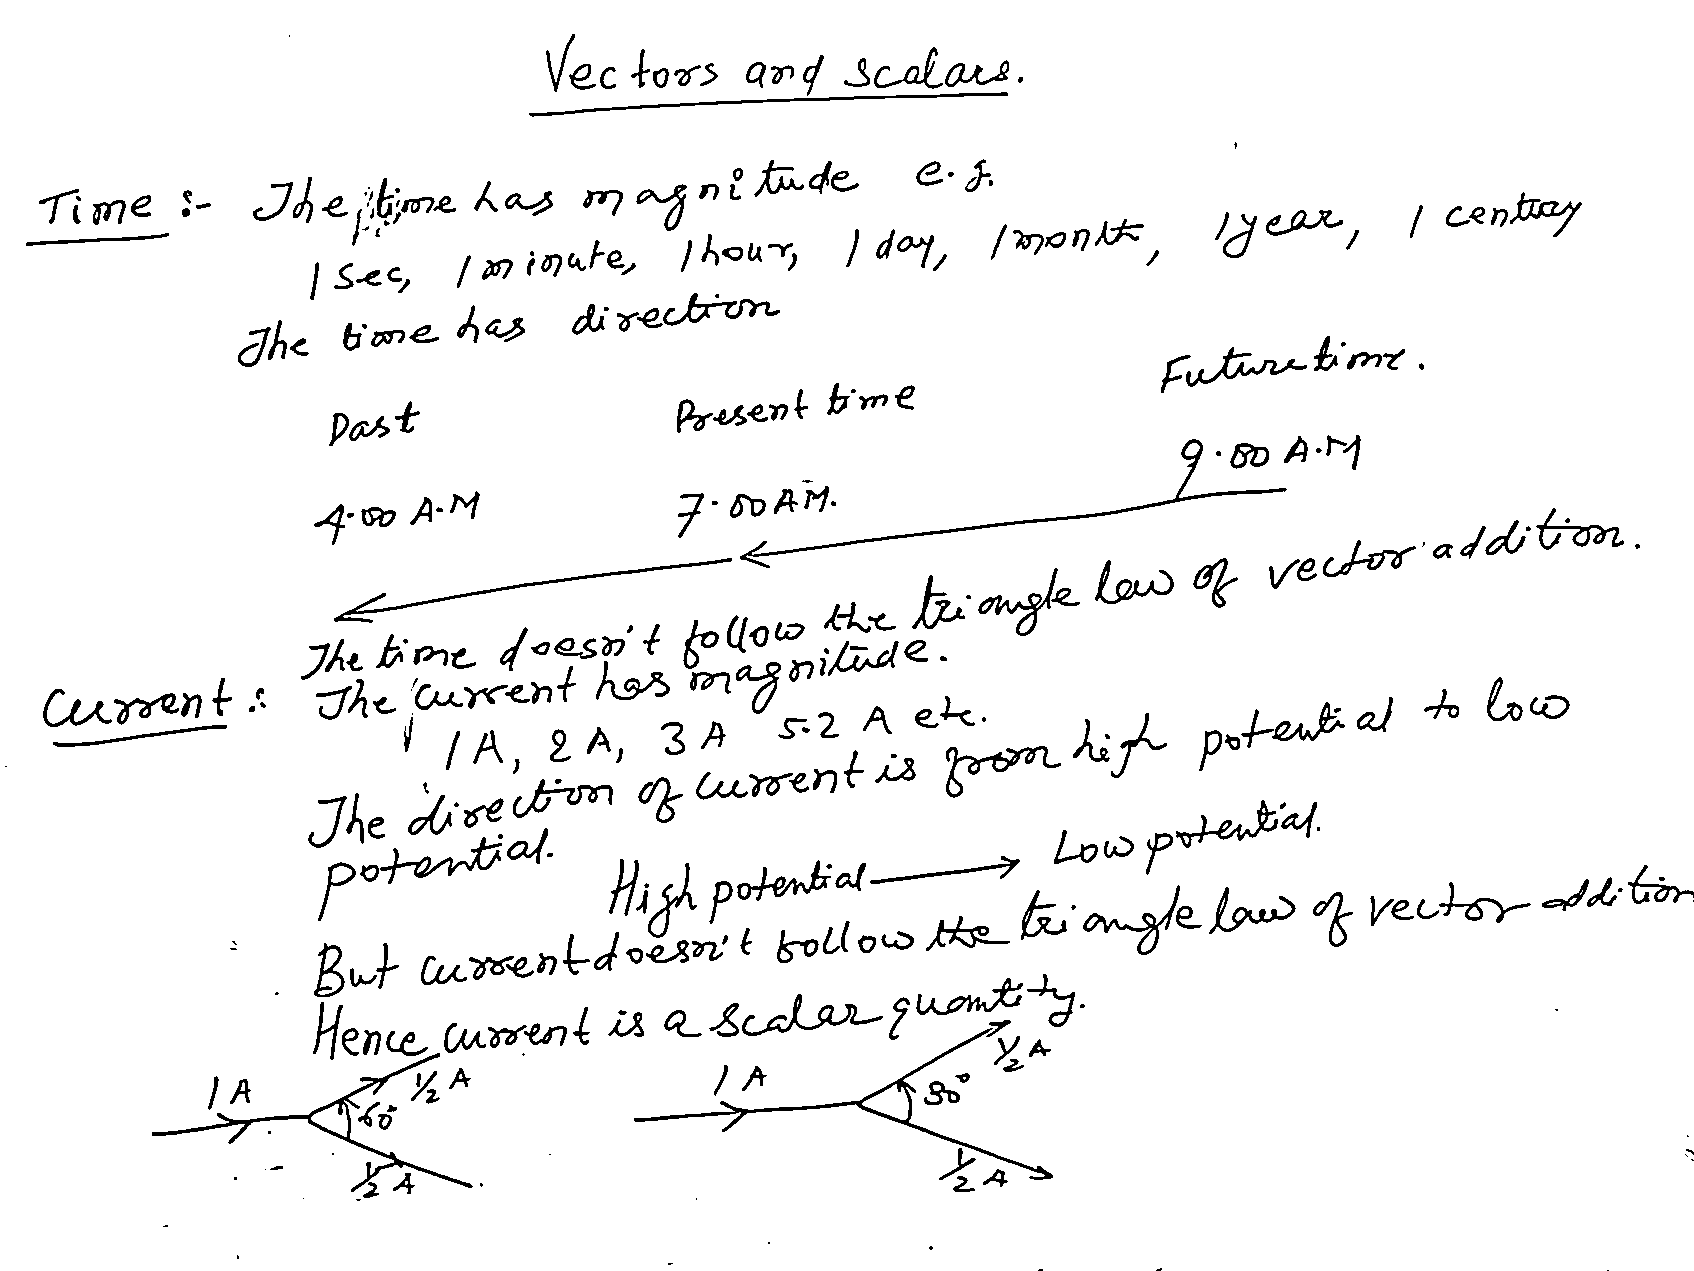 Vectors and scalars.
Time :- The time has magnitude e.g.
1 sec, 1 minute, 1 hour, 1 day, 1 month, 1 year, 1 century
The time has direction
Past Present time Future time.
4.00 A.M 7.00 A.M. 9.00 A.M
The time doesn't follow the triangle law of vector addition.
Current : The current has magnitude.
1 A, 2 A, 3 A 5.2 A etc.
The direction of current is from high potential to low
potential.
High potential → Low potential.
But current doesn't follow the triangle law of vector addition
Hence current is a scalar quantity.
1 A ½ A 60° ½ A
1 A ½ A 90° ½ A